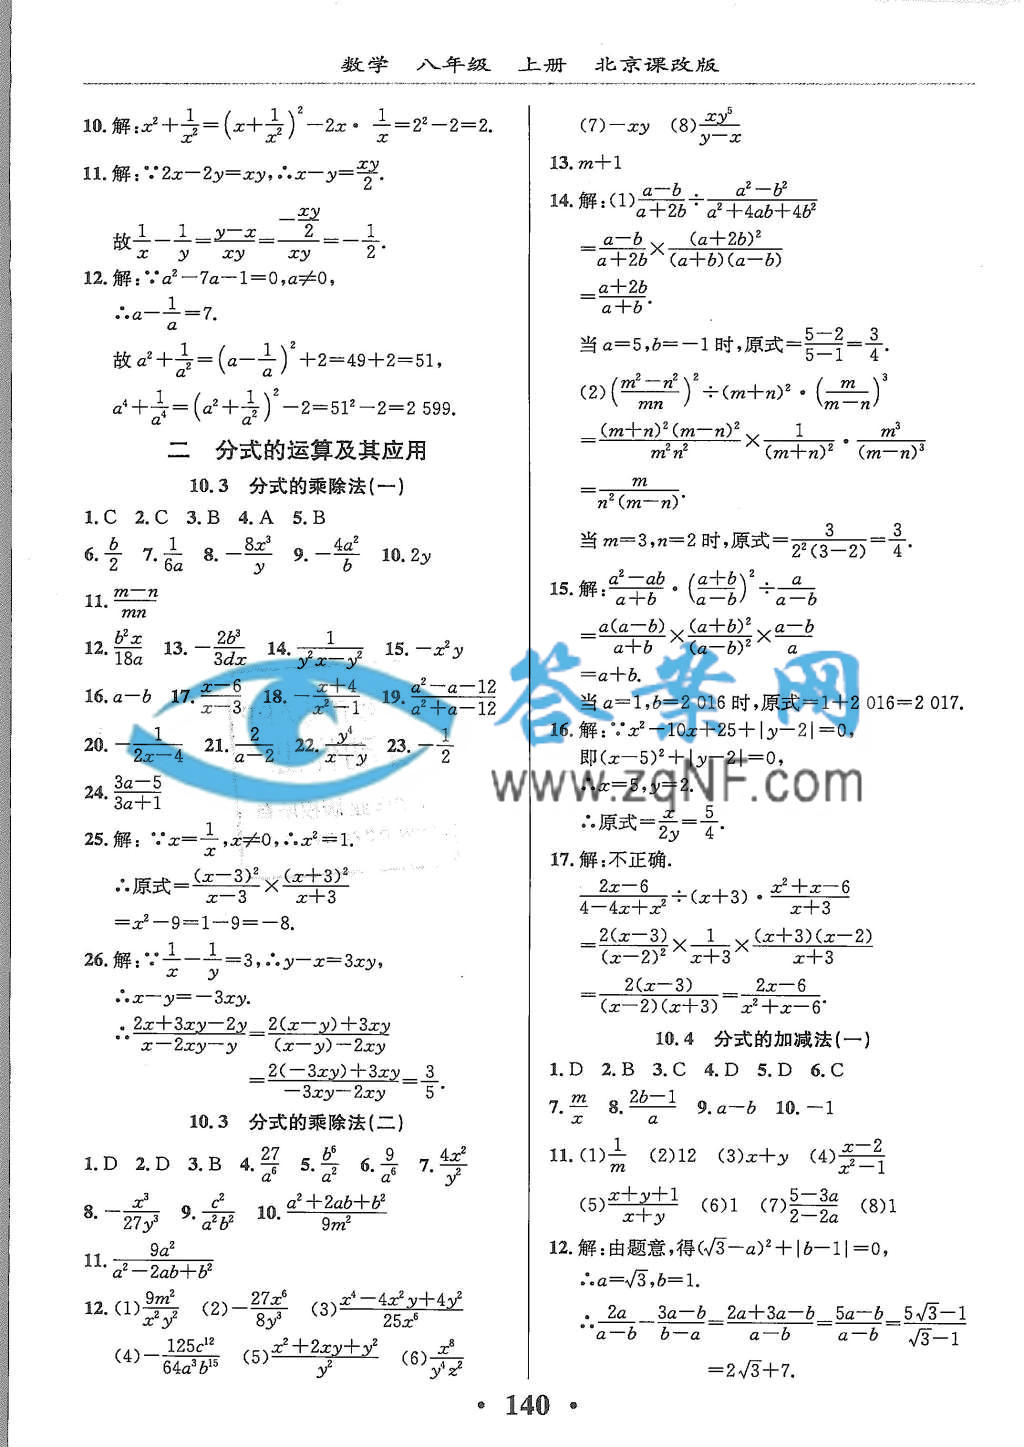 数学 八年级 上册 北京课改版
10.解:x²+1/x²=(x+1/x²)²-2x·1/x=2²-2=2.
11.解:∵2x-2y=xy,∴x-y=xy/2.
故1/x-1/y=(y-x)/xy=(-xy/2)/xy=-1/2.
12.解:∵a²-7a-1=0,a≠0,
∴a-1/a=7.
故a²+1/a²=(a-1/a)²+2=49+2=51,
a⁴+1/a⁴=(a²+1/a²)²-2=51²-2=2 599.
二 分式的运算及其应用
10.3 分式的乘除法(一)
1.C 2.C 3.B 4.A 5.B
6.b/2 7.1/6a 8.-8x³/y 9.-4a²/b 10.2y
11.(m-n)/mn
12.b²x/18a 13.-2b³/3dx 14.1/(y²x-y²) 15.-x²y
16.a-b 17.(x-6)/(x-3) 18.-(x+4)/(x²-1) 19.(a²-a-12)/(a²+a-12)
20.-1/(2x-4) 21.2/(a-2) 22.y⁴/(x-y) 23.-1/2
24.(3a-5)/(3a+1)
25.解:∵x=1/x,x≠0,∴x²=1.
∴原式=(x-3)²/(x-3)×(x+3)²/(x+3)
=x²-9=1-9=-8.
26.解:∵1/x-1/y=3,∴y-x=3xy,
∴x-y=-3xy.
∴(2x+3xy-2y)/(x-2xy-y)=(2(x-y)+3xy)/((x-y)-2xy)
=(2(-3xy)+3xy)/(-3xy-2xy)=3/5.
10.3 分式的乘除法(二)
1.D 2.D 3.B 4.27/a⁶ 5.b⁶/a² 6.9/a⁶ 7.4x²/y²
8.-x³/27y³ 9.c²/a²b² 10.(a²+2ab+b²)/9m²
11.9a²/(a²-2ab+b²)
12.(1)9m²/x²y² (2)-27x⁶/8y³ (3)(x⁴-4x²y+4y²)/25x⁶
(4)-125c¹²/64a³b¹⁵ (5)(x²+2xy+y²)/y² (6)x⁸/y⁴z²
(7)-xy (8)xy⁵/(y-x)
13.m+1
14.解:(1)(a-b)/(a+2b)÷(a²-b²)/(a²+4ab+4b²)
=(a-b)/(a+2b)×(a+2b)²/((a+b)(a-b))
=(a+2b)/(a+b).
当a=5,b=-1时,原式=(5-2)/(5-1)=3/4.
(2)((m²-n²)/mn)²÷(m+n)²·(m/(m-n))³
=(m+n)²(m-n)²/m²n²×1/(m+n)²·m³/(m-n)³
=m/(n²(m-n)).
当m=3,n=2时,原式=3/(2²(3-2))=3/4.
15.解:(a²-ab)/(a+b)·((a+b)/(a-b))²÷a/(a-b)
=a(a-b)/(a+b)×(a+b)²/(a-b)²×(a-b)/a
=a+b.
当a=1,b=2 016时,原式=1+2 016=2 017.
16.解:∵x²-10x+25+|y-2|=0,
即(x-5)²+|y-2|=0,
∴x=5,y=2.
∴原式=x/2y=5/4.
17.解:不正确.
(2x-6)/(4-4x+x²)÷(x+3)·(x²+x-6)/(x+3)
=2(x-3)/(x-2)²×1/(x+3)×(x+3)(x-2)/(x+3)
=2(x-3)/((x-2)(x+3))=(2x-6)/(x²+x-6).
10.4 分式的加减法(一)
1.D 2.B 3.C 4.D 5.D 6.C
7.m/x 8.(2b-1)/a 9.a-b 10.-1
11.(1)1/m (2)12 (3)x+y (4)(x-2)/(x²-1)
(5)(x+y+1)/(x+y) (6)1 (7)(5-3a)/(2-2a) (8)1
12.解:由题意,得(√3-a)²+|b-1|=0,
∴a=√3,b=1.
∴2a/(a-b)-(3a-b)/(b-a)=(2a+3a-b)/(a-b)=(5a-b)/(a-b)=(5√3-1)/(√3-1)
=2√3+7.
· 140 ·
答案网
www.zqNF.com